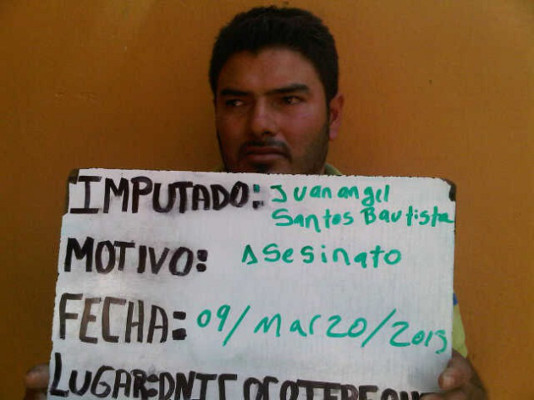 IMPUTADO: Juan angel
Santos Bautista
MOTIVO: Asesinato
FECHA: 09/marzo/2013
LUGAR: